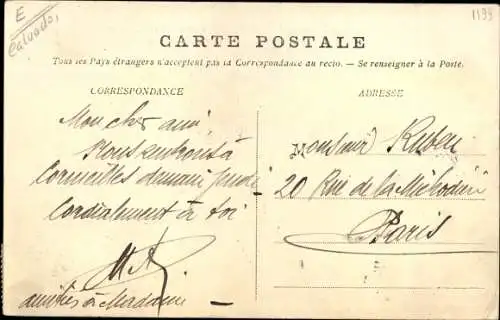 E
Calvados,
1199
CARTE POSTALE
Tous les Pays étrangers n'acceptent pas la Correspondance au recto. — Se renseigner à la Poste.
CORRESPONDANCE
Mon cher ami,
à
Cormeilles demain
Cordialement à toi
amitiés à Madame
ADRESSE
Monsieur Ruben
20 Rue de la
Paris